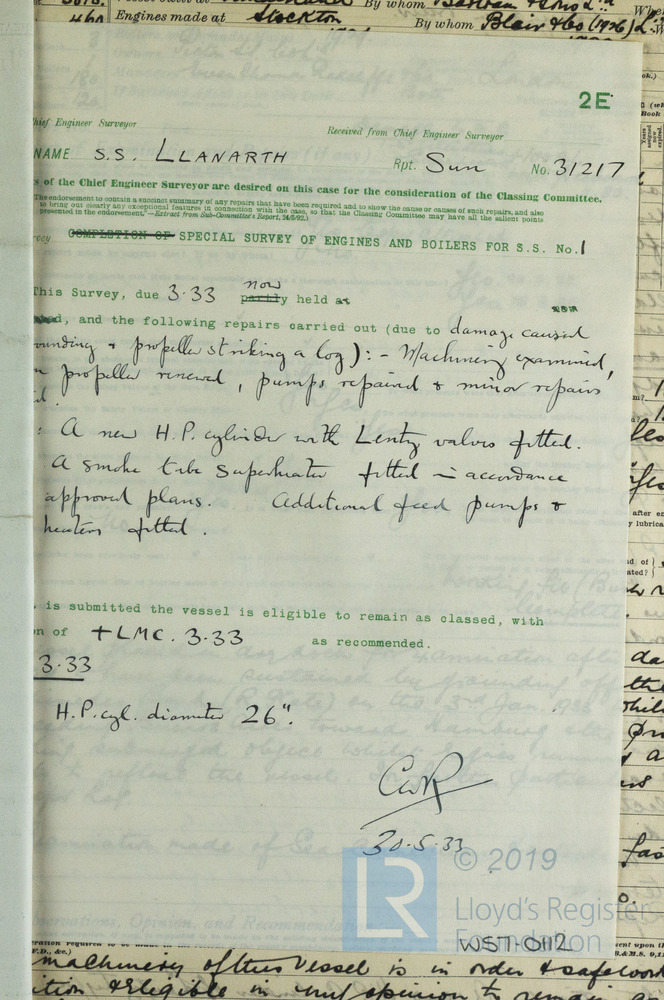 By whom Bartram & Sons Ld
460 Engines made at Stockton By whom Blair & Co (1926) Ld
2E
hief Engineer Surveyor
Received from Chief Engineer Surveyor
NAME S.S. LLANARTH Rpt. Sun No. 31217
s of the Chief Engineer Surveyor are desired on this case for the consideration of the Classing Committee.
The endorsement to contain a succinct summary of any repairs that have been required and to show the cause or causes of such repairs, and also
to bring out clearly any exceptional features in connection with the case, so that the Classing Committee may have all the salient points
presented in the endorsement."—Extract from Sub-Committee's Report, 24/5/92.)
COMPLETION OF SPECIAL SURVEY OF ENGINES AND BOILERS FOR S.S. No. 1
This Survey, due 3.33 partly now held at
, and the following repairs carried out (due to damage caused
ounding & propeller striking a log):- Machinery examined,
propeller renewed, pumps repaired & minor repairs
: A new H.P. cylinder with Lentz valves fitted.
A smoke tube superheater fitted in accordance
approved plans. Additional feed pumps &
heaters fitted.
is submitted the vessel is eligible to remain as classed, with
n of +LMC. 3.33 as recommended.
3.33
H.P. cyl. diameter 26".
CWR
30.5.33
© 2019
LR
Lloyd's Register
Foundation
WST-0112
machinery of this Vessel is in order & safe work
ition & Eligible in my opinion to remain